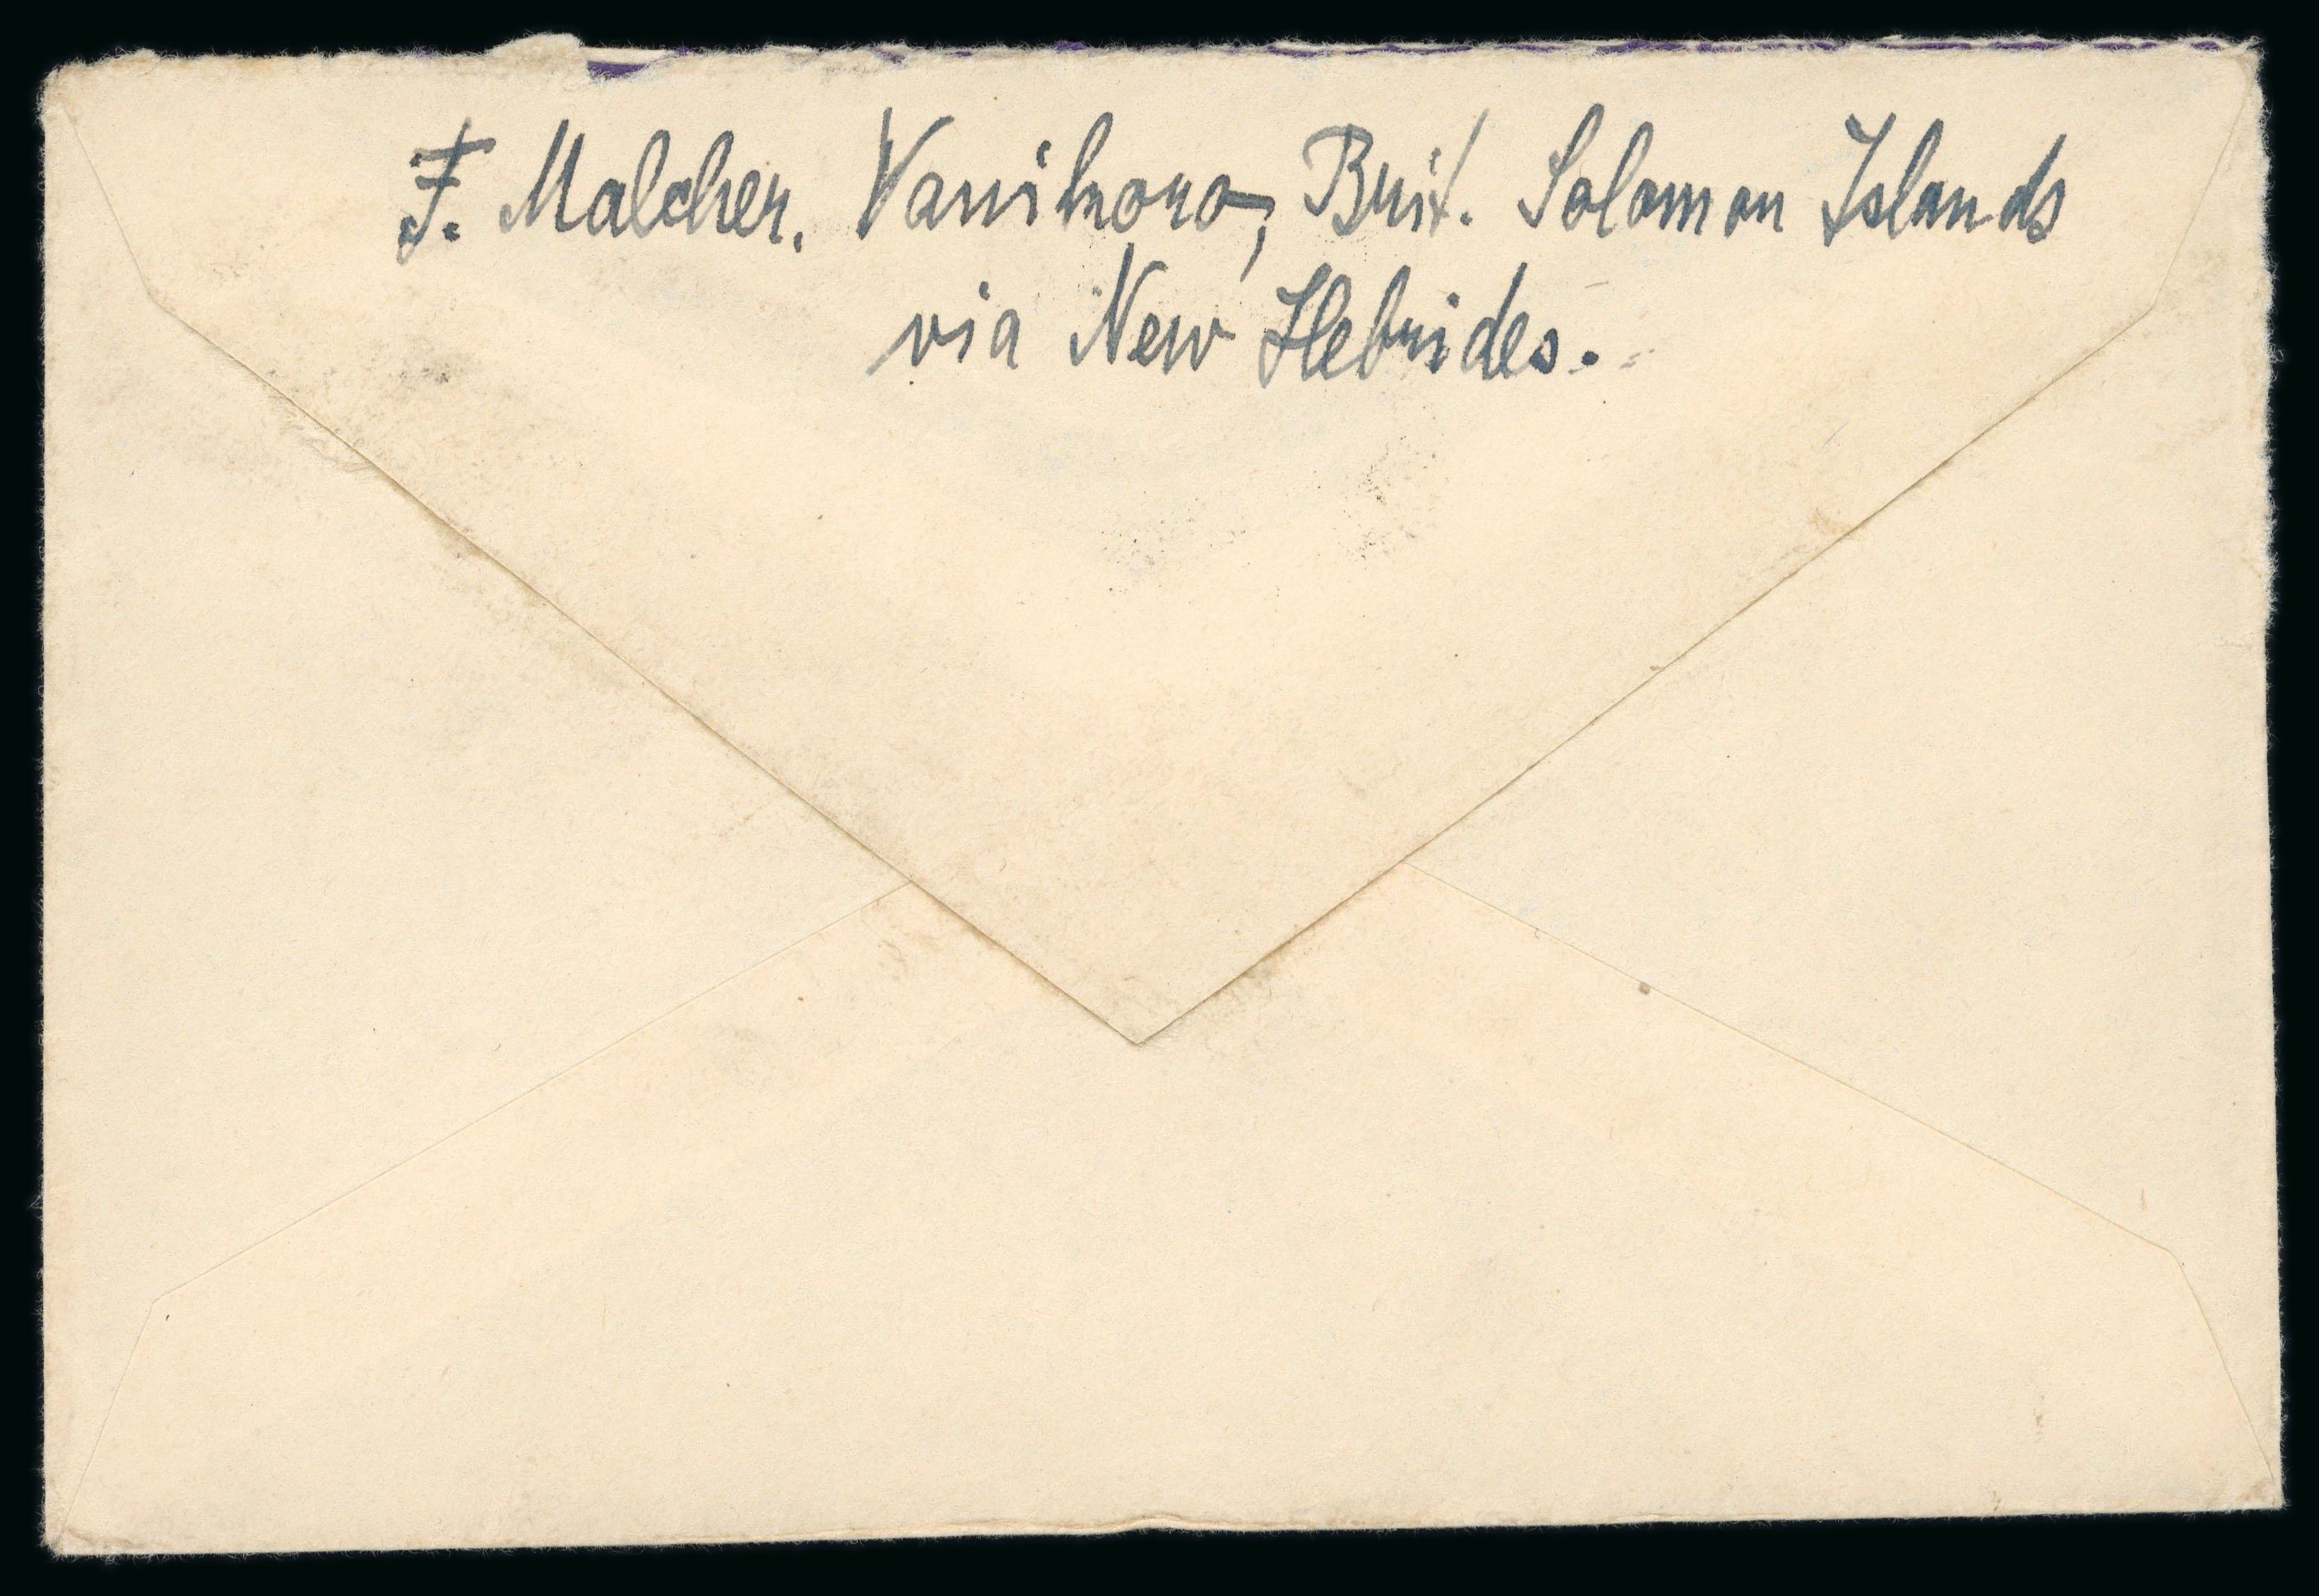 F. Malcher. Vanikoro, Brit. Solomon Islands
via New Hebrides.